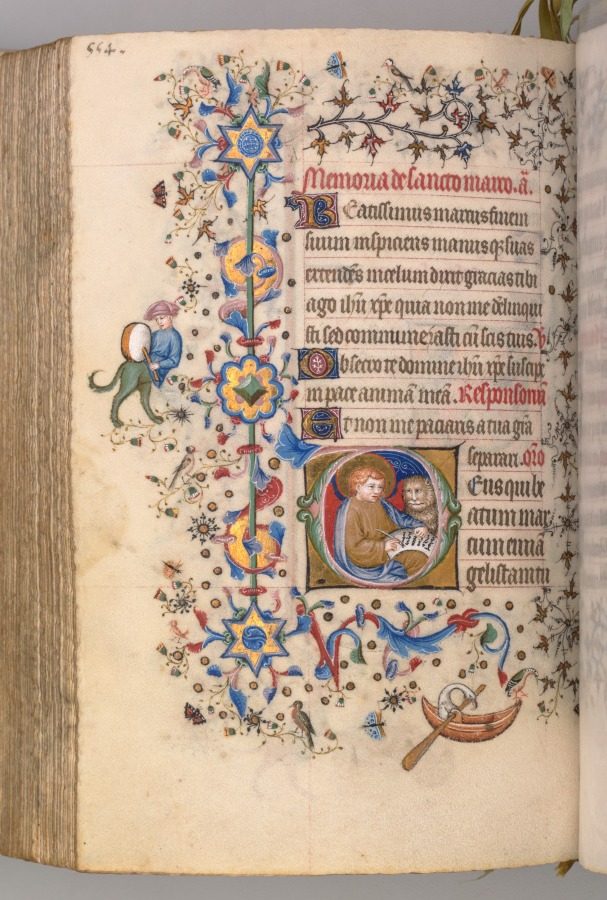 554.
Memoria de sancto marco. ā.
Beatissimus marcus finem
suum inspiciens manusqȝ suas
extendēs in celum dixit gracias tibi
ago ihū xpē quia non me delinqui
sti sed connumerasti cū scīs tuis. V
Obsecro te domine ihū xpē suscipe
in pace animā meā. Responsoriū
Et non me paciaris a tua grā
separari. orō
Deus qui be
atum mar
cum euuā
gelistam tu